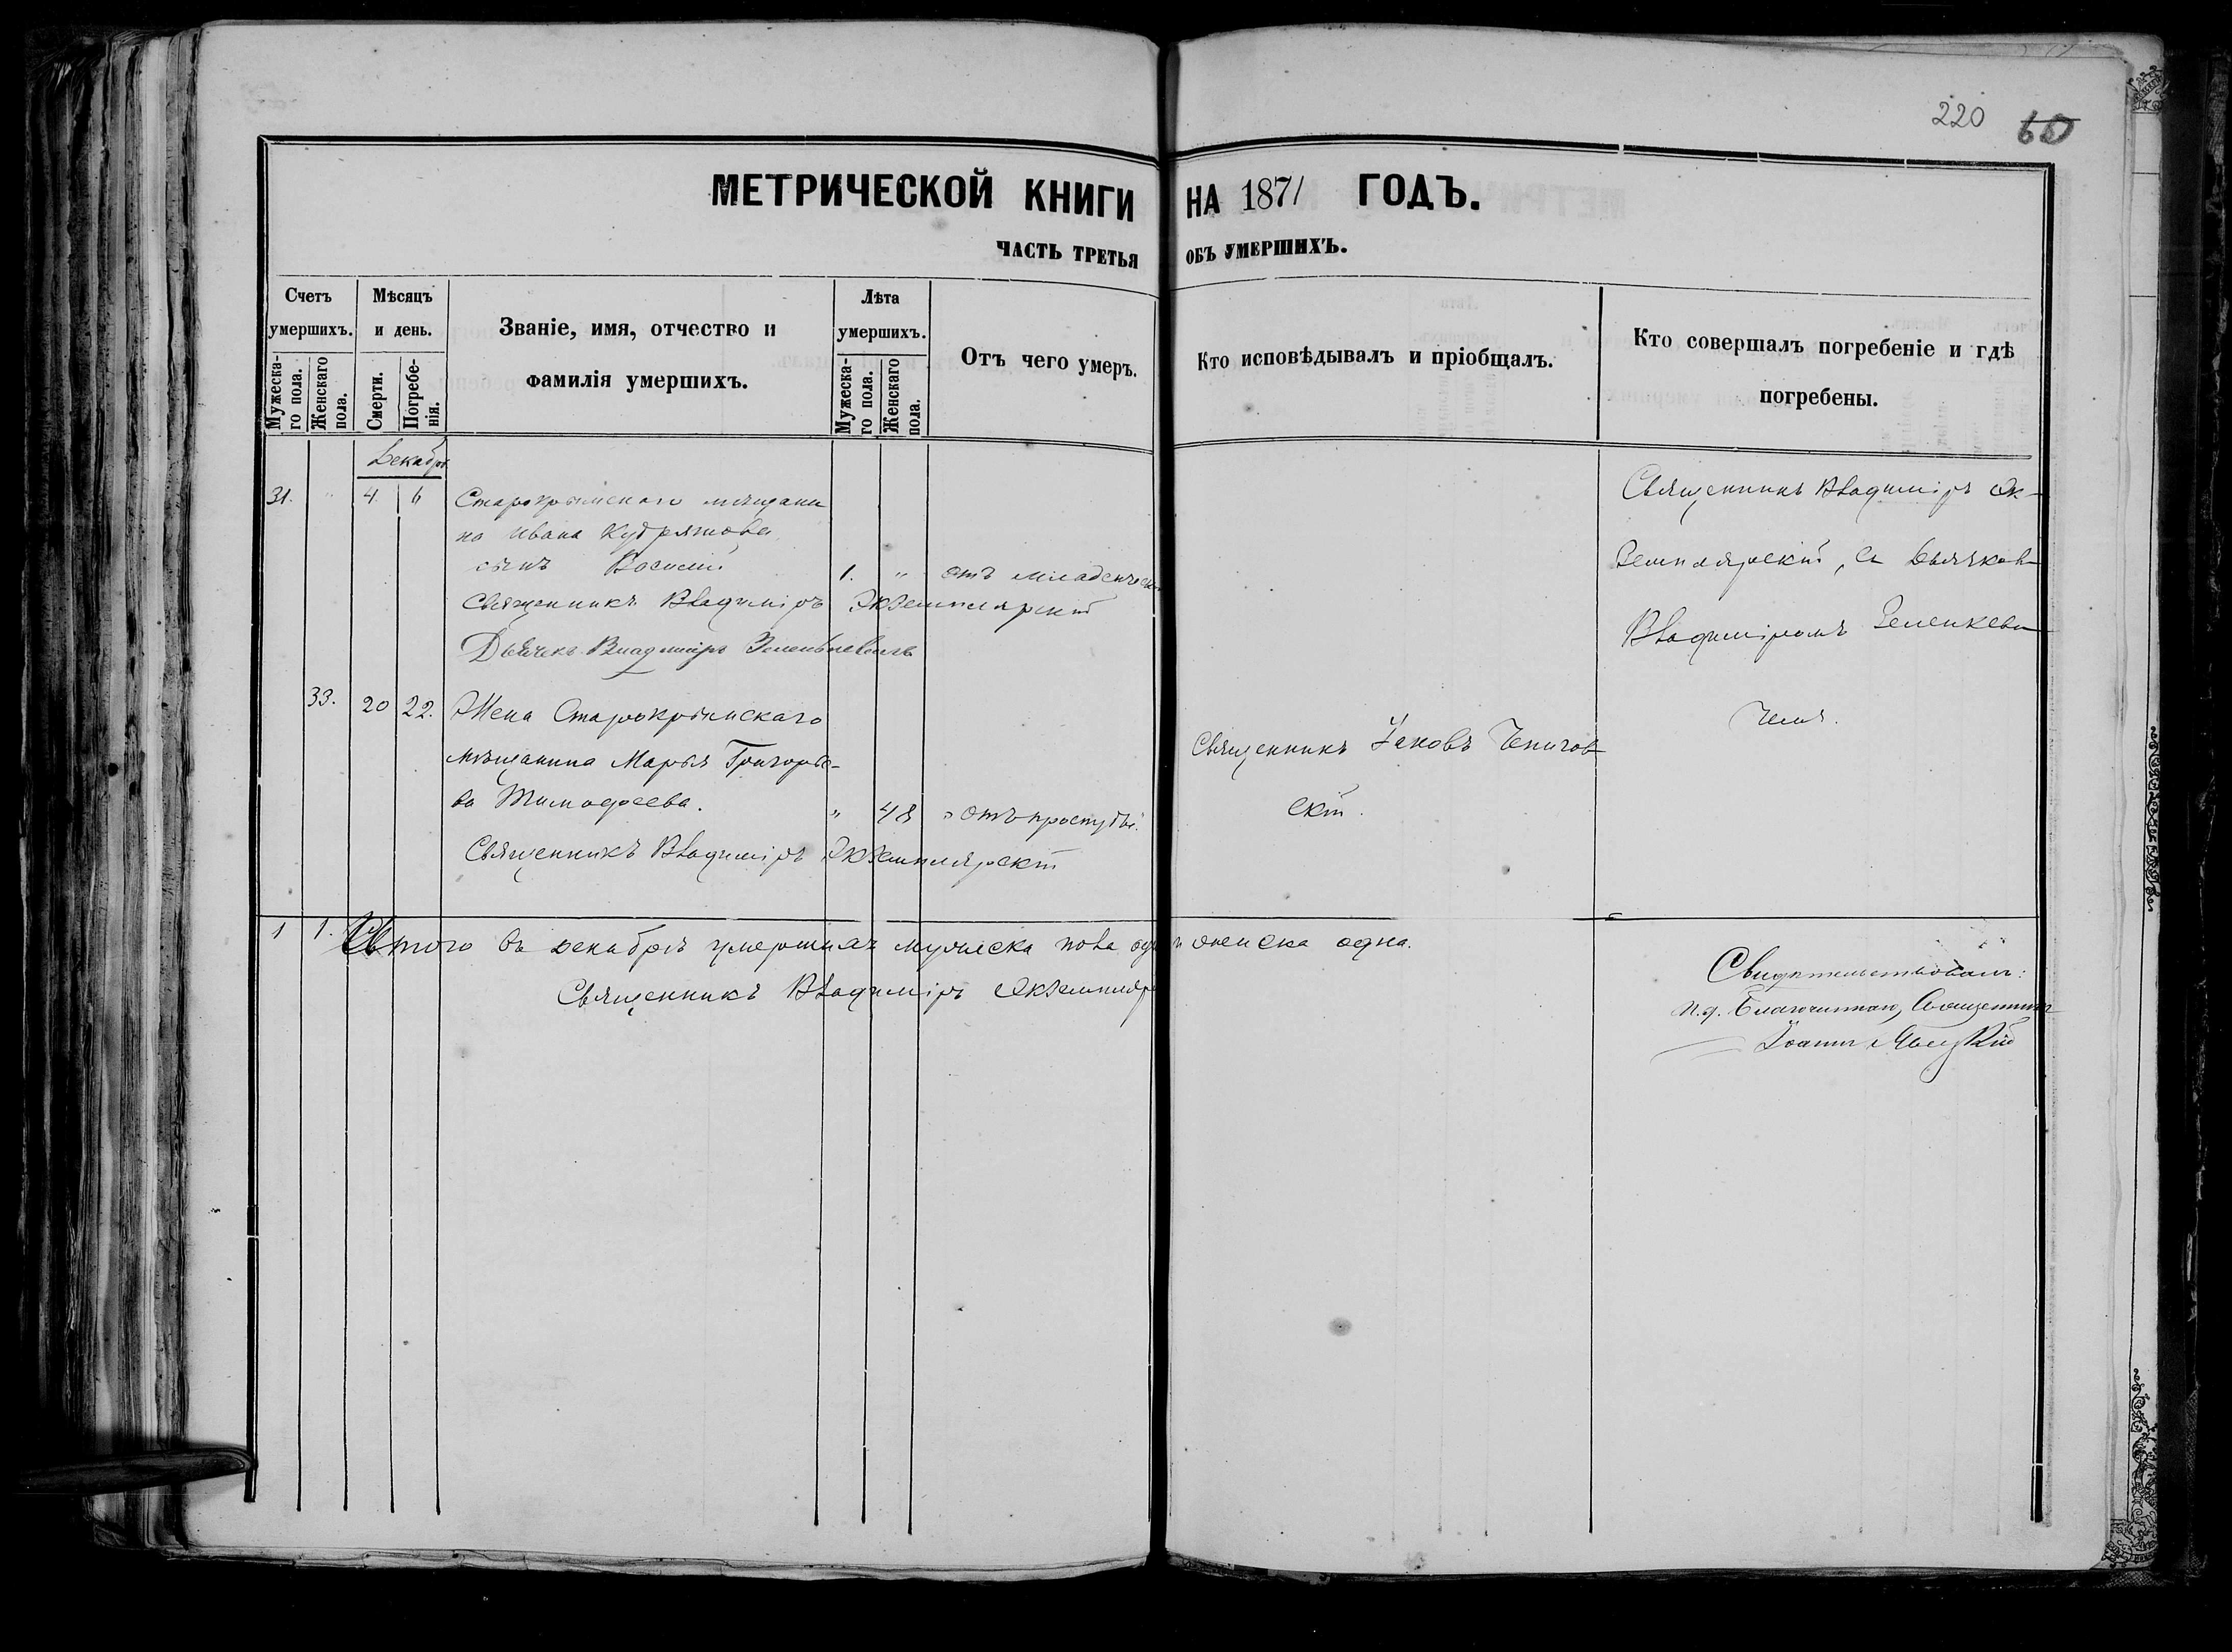 220 60
МЕТРИЧЕСКОЙ КНИГИ НА 1871 ГОДЪ.
ЧАСТЬ ТРЕТЬЯ ОБЪ УМЕРШИХЪ.
Счетъ умершихъ.
Мужескаго пола.
Женскаго пола.
Мѣсяцъ и день.
Смерти.
Погребенія.
Званіе, имя, отчество и
фамилія умершихъ.
Лѣта умершихъ.
Мужескаго пола.
Женскаго пола.
Отъ чего умеръ.
Кто исповѣдывалъ и пріобщалъ.
Кто совершалъ погребеніе и гдѣ
погребены.
Декабрь
31. " 4 6 Старокрымскаго мѣщани
на Ивана Кудряшова
сынъ Василій 1. " отъ младенческ
Священникъ Владиміръ Экземплярскій
Дьячекъ Владиміръ Зеленкевичъ
Священникъ Владиміръ Эк-
земплярскій, съ Дьячком
Владиміромъ Зеленкеви
чемъ.
33. 20 22. Жена Старокрымскаго
мѣщанина Марья Григорье-
ва Тимофеева. " 48 " отъ простуды.
Священникъ Владиміръ Экземплярскій
Священникъ Іаковъ Чепигов
скій.
1 1. Итого въ декабрѣ умершихъ мужеска пола од женска одна.
Священникъ Владиміръ Экземпляр
Свидѣтельствовалъ:
и.д. Благочиннаго, Священникъ
Іоаннъ